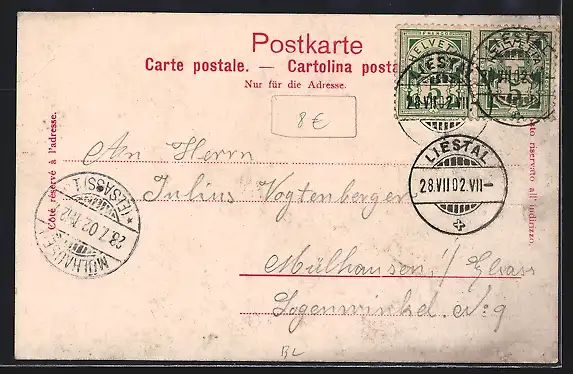 Postkarte
Carte postale. — Cartolina posta
Nur für die Adresse.
FRANCO
HELVETIA
HELVETIA
5
5
LIESTAL
28.VII.02.VII-
LIESTAL
28.VII.02.VII-
LIESTAL
28.VII.02.VII-
8€
Côté réservé à l'adresse.
to riservato all'indirizzo.
An Herrn
Julius Vogtenberger
Mülhausen i/ Elsass
Logenwinkel No 9
MÜLHAUSEN
28.7.02
* (ELSASS) 1
BL